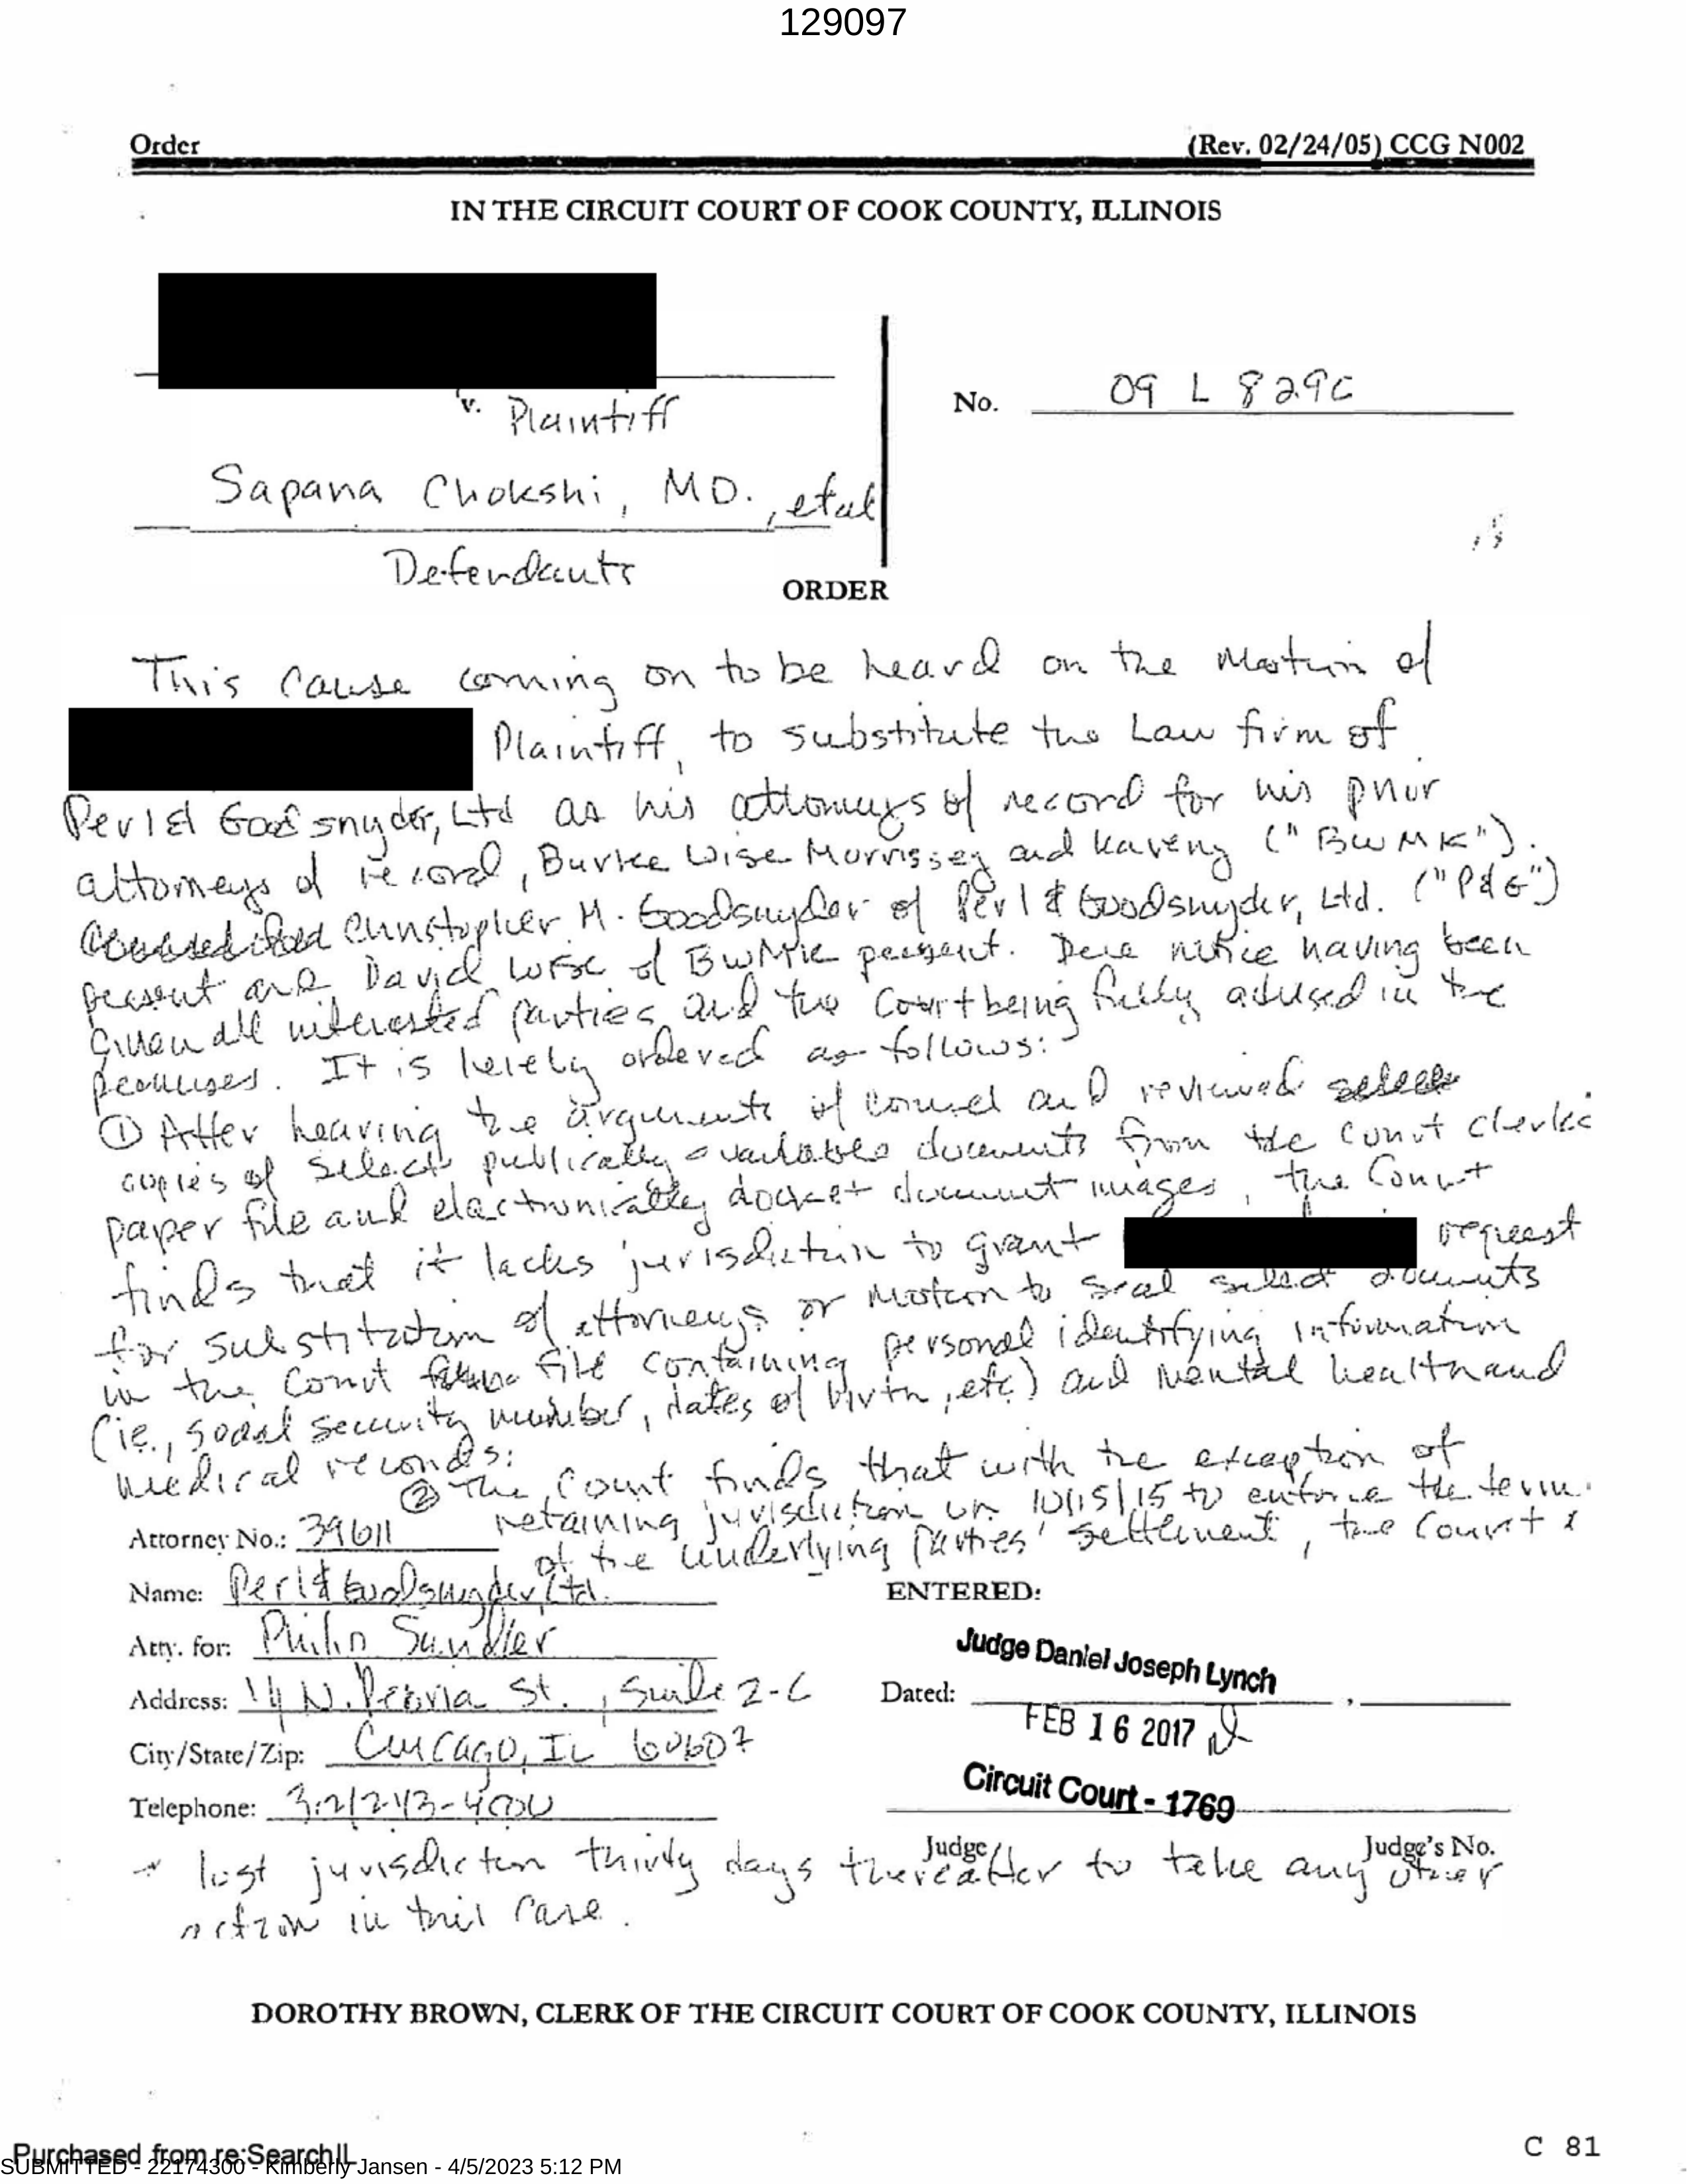 129097
Order
(Rev. 02/24/05) CCG N002
IN THE CIRCUIT COURT OF COOK COUNTY, ILLINOIS
v. Plaintiff
No. 09 L 8296
Sapana Chokshi, MD., et al
Defendants
ORDER
This cause coming on to be heard on the Motion of
Plaintiff, to substitute the Law firm of
Perl & Goodsnyder, Ltd as his attorneys of record for his prior
attorneys of record, Burke Wise Morrissey and Kaveny ("BWMK").
Christopher M. Goodsnyder of Perl & Goodsnyder, Ltd. ("P&G")
present and David Wise of BWMK present. Due notice having been
given all interested parties and the Court being fully advised in the
premises. It is hereby ordered as follows:
① After hearing the arguments of counsel and reviewed
copies of select publically available documents from the court clerks
paper file and electronically docket document images, the Court
finds that it lacks jurisdiction to grant request
for substitution of attorneys or motion to seal select documents
in the Court file containing personal identifying information
(ie., social security number, dates of birth, etc) and mental health and
medical records:
② The Court finds that with the exception of
retaining jurisdiction on 10/15/15 to enforce the term
of the underlying parties' settlement, the Court
Attorney No.: 39611
Name: Perl & Goodsnyder, Ltd.
ENTERED:
Atty. for: Philip Sandler
Judge Daniel Joseph Lynch
Address: 14 N. Peoria St., Suite 2-C
Dated: ,
FEB 16 2017
City/State/Zip: Chicago, IL 60607
Circuit Court - 1769
Telephone: 312/243-4500
Judge
Judge's No.
lost jurisdiction thirty days thereafter to take any other
action in this case.
DOROTHY BROWN, CLERK OF THE CIRCUIT COURT OF COOK COUNTY, ILLINOIS
Purchased from re:SearchIL
SUBMITTED - 22174300 - Kimberly Jansen - 4/5/2023 5:12 PM
C 81